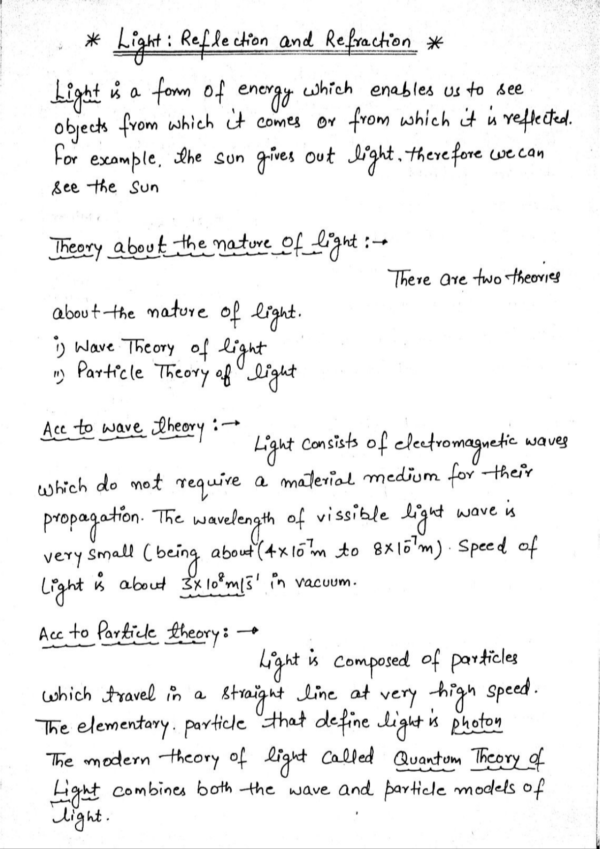 * Light: Reflection and Refraction *
Light is a form of energy which enables us to see
objects from which it comes or from which it is reflected.
For example, the sun gives out light, therefore we can
see the sun
Theory about the nature of light :→
There are two theories
about the nature of light.
i) Wave Theory of light
ii) Particle Theory of light
Acc to wave theory :→
Light consists of electromagnetic waves
which do not require a material medium for their
propagation. The wavelength of vissible light wave is
very small (being about (4×10⁻⁷m to 8×10⁻⁷m). Speed of
light is about 3×10⁸m/s⁻¹ in vacuum.
Acc to Particle theory: →
Light is composed of particles
which travel in a straight line at very high speed.
The elementary. particle that define light is photon
The modern theory of light called Quantum Theory of
Light combines both the wave and particle models of
light.